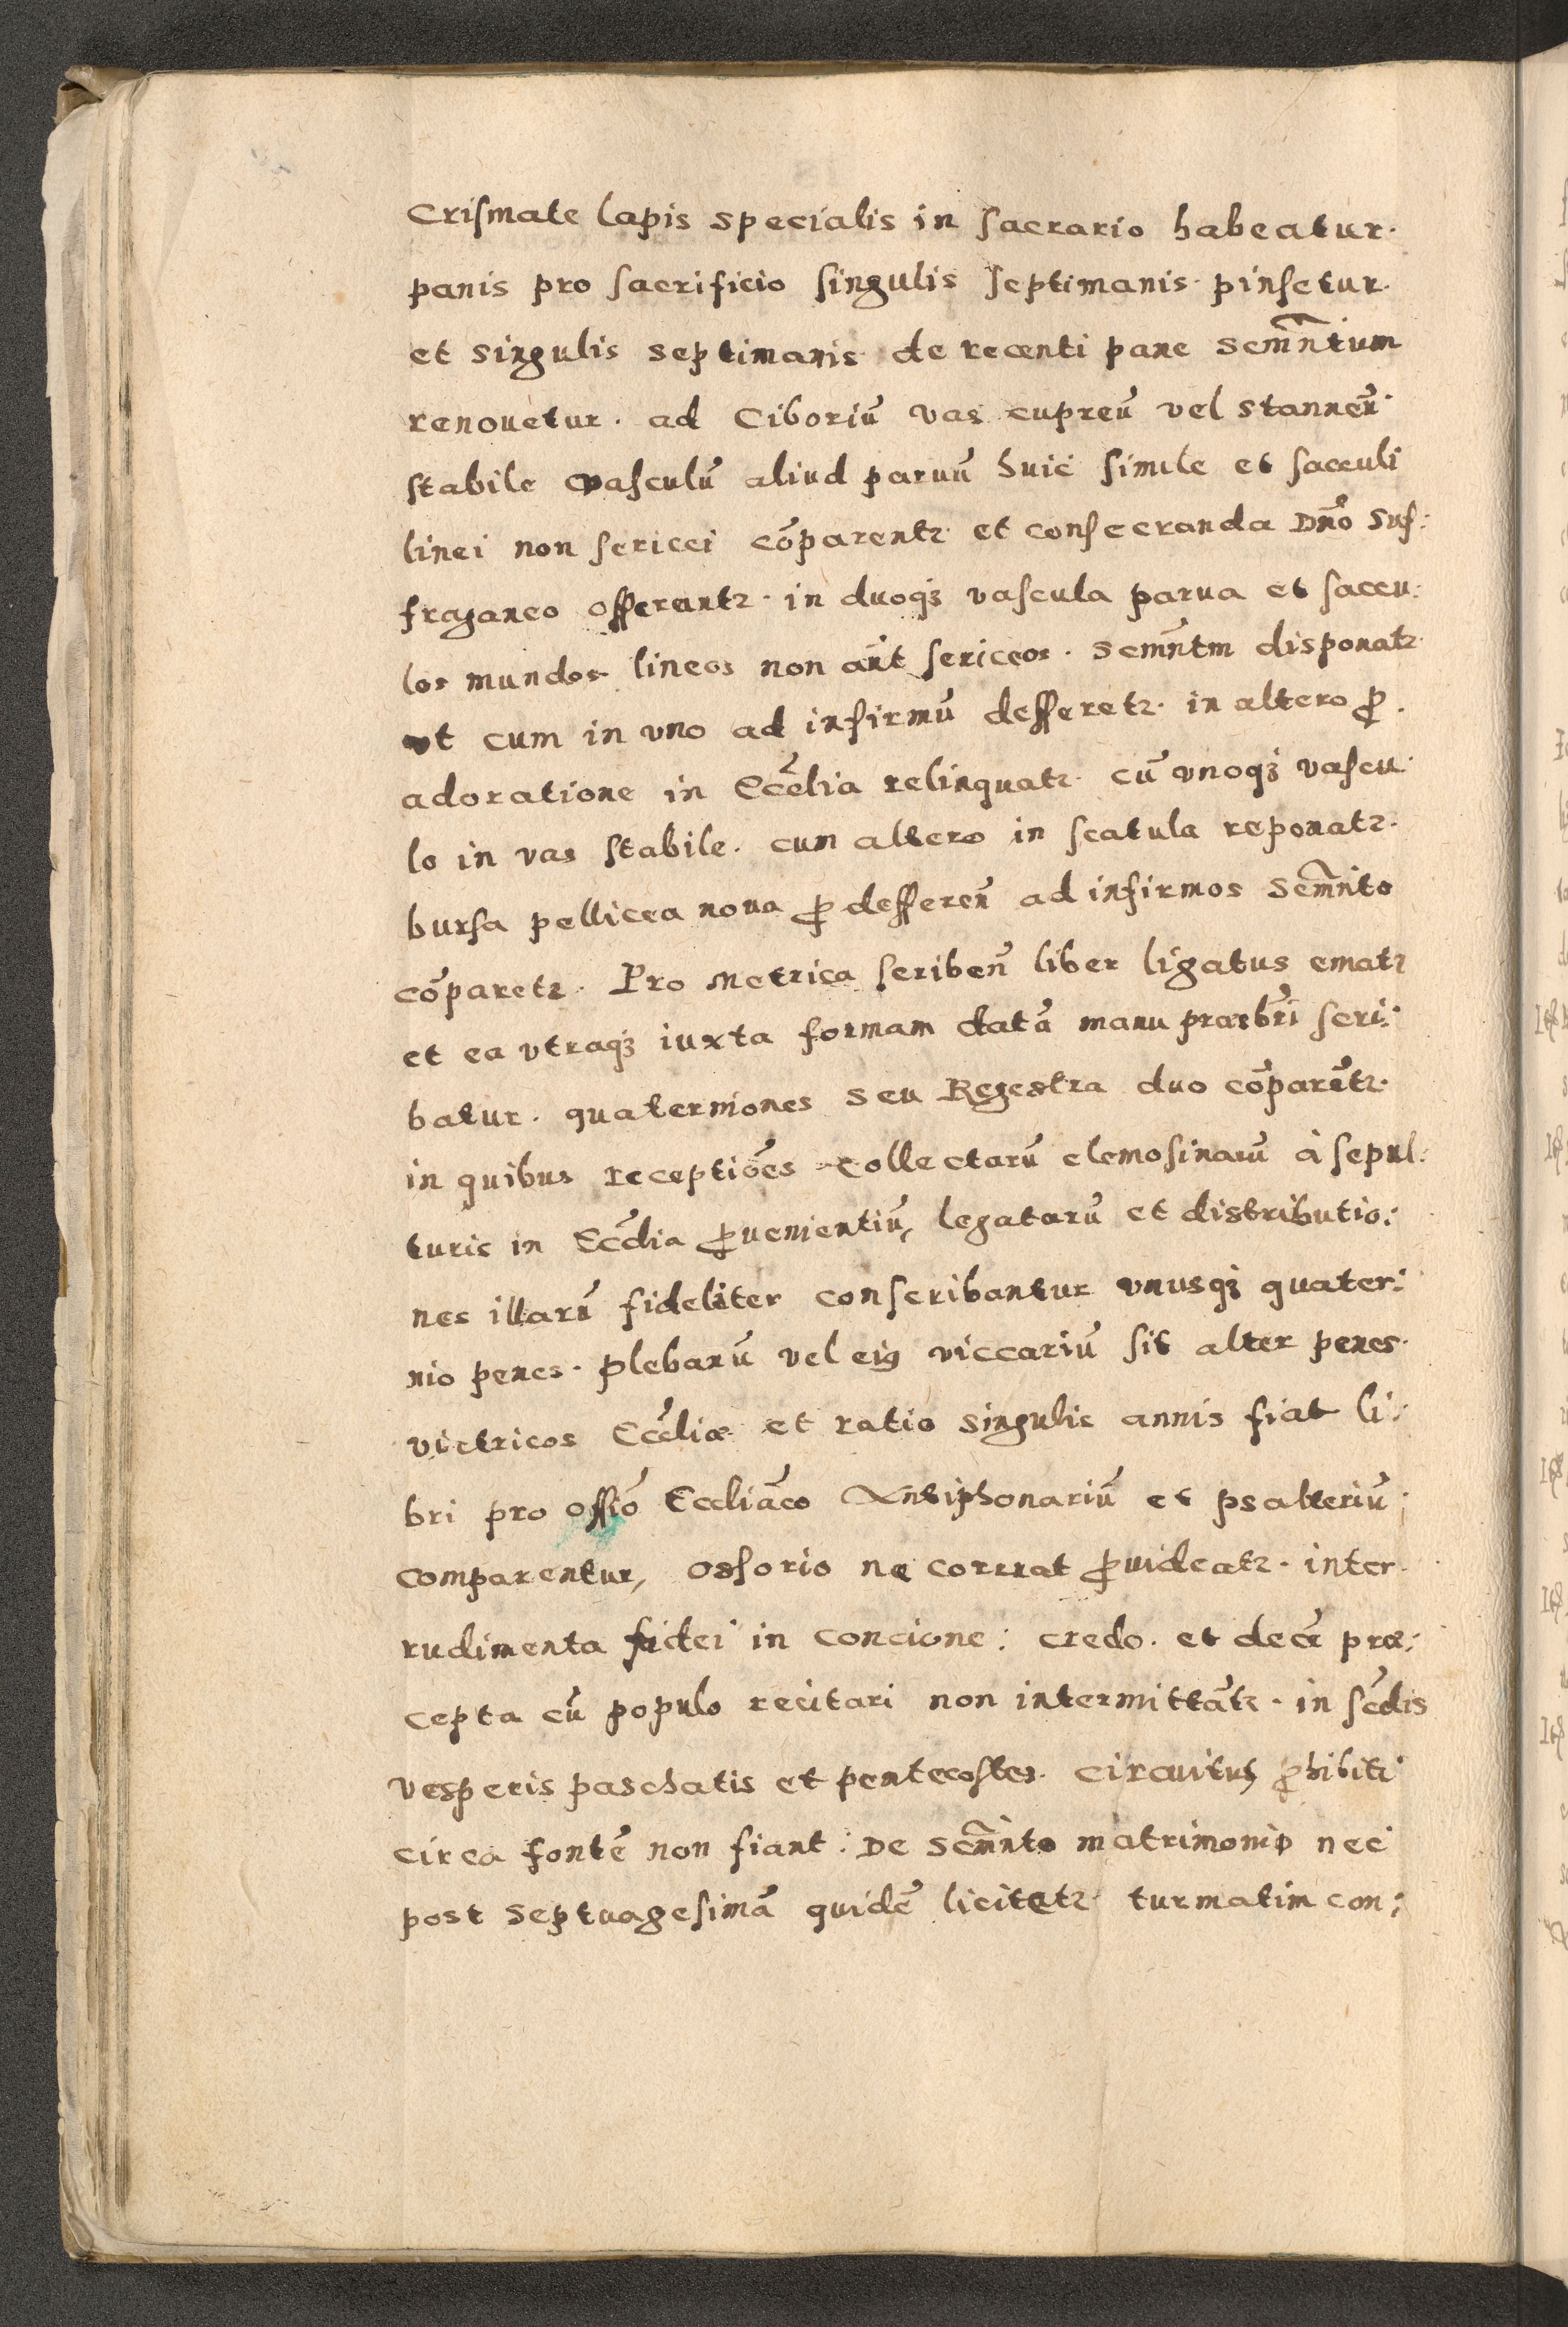 Crismate lapis specialis in sacrario habeatur.
panis pro sacrificio singulis septimanis pinsetur.
et singulis septimanis de recenti pane scm̃ntum
renouetur. ad Ciboriũ vas cupreũ vel stanneũ
stabile vasculũ aliud paruũ huic simile et sacculi
linei non sericei cõparentr et consecranda Dnõ Suf:
fraganeo offerantr. in duoq₃ vascula parua et saccu:
los mundos lineos non aũt sericeos. scm̃ntm disponatr
vt cum in vno ad infirmũ defferetr. in altero ꝓ
adoratione in Eccẽlia relinquatr. cũ vnoq₃ vascu
lo in vas stabile. cum altero in scatula reponatr.
bursa pellicea noua ꝓ defferen̄ ad infirmos scm̃nto
cõparetr. Pro Metrica scriben̄ liber ligatus ematr
et ea vtraq₃ iuxta formam datã manu præsbr̃i scri:
batur. quaterniones seu Regestra duo cõparẽtr.
in quibus receptiões collectarũ elemosinarũ à sepul:
turis in Eccẽlia ꝓuenientiũ, legatorũ et distributio:
nes illarũ fideliter conscribantur vnusq₃ quater:
nio penes. plebanũ vel eiꝰ viccariũ sit alter penes.
victricos Eccẽliæ et ratio singulis annis fiat li:
bri pro offiõ Eccliãco Antiphonariũ et psalteriũ
comparentur, ossorio ne corruat ꝓuideatr. inter
rudimenta fidei in concione: credo. et decẽ præ:
cepta cũ populo recitari non intermittãtr. in sc̃dis
vesperis paschatis et pentecostes. circuitus ꝓhibiti
circa fontẽ non fiant: De scm̃nto matrimonio nec
post septuagesimã quidẽ licitetr. turmatim con: